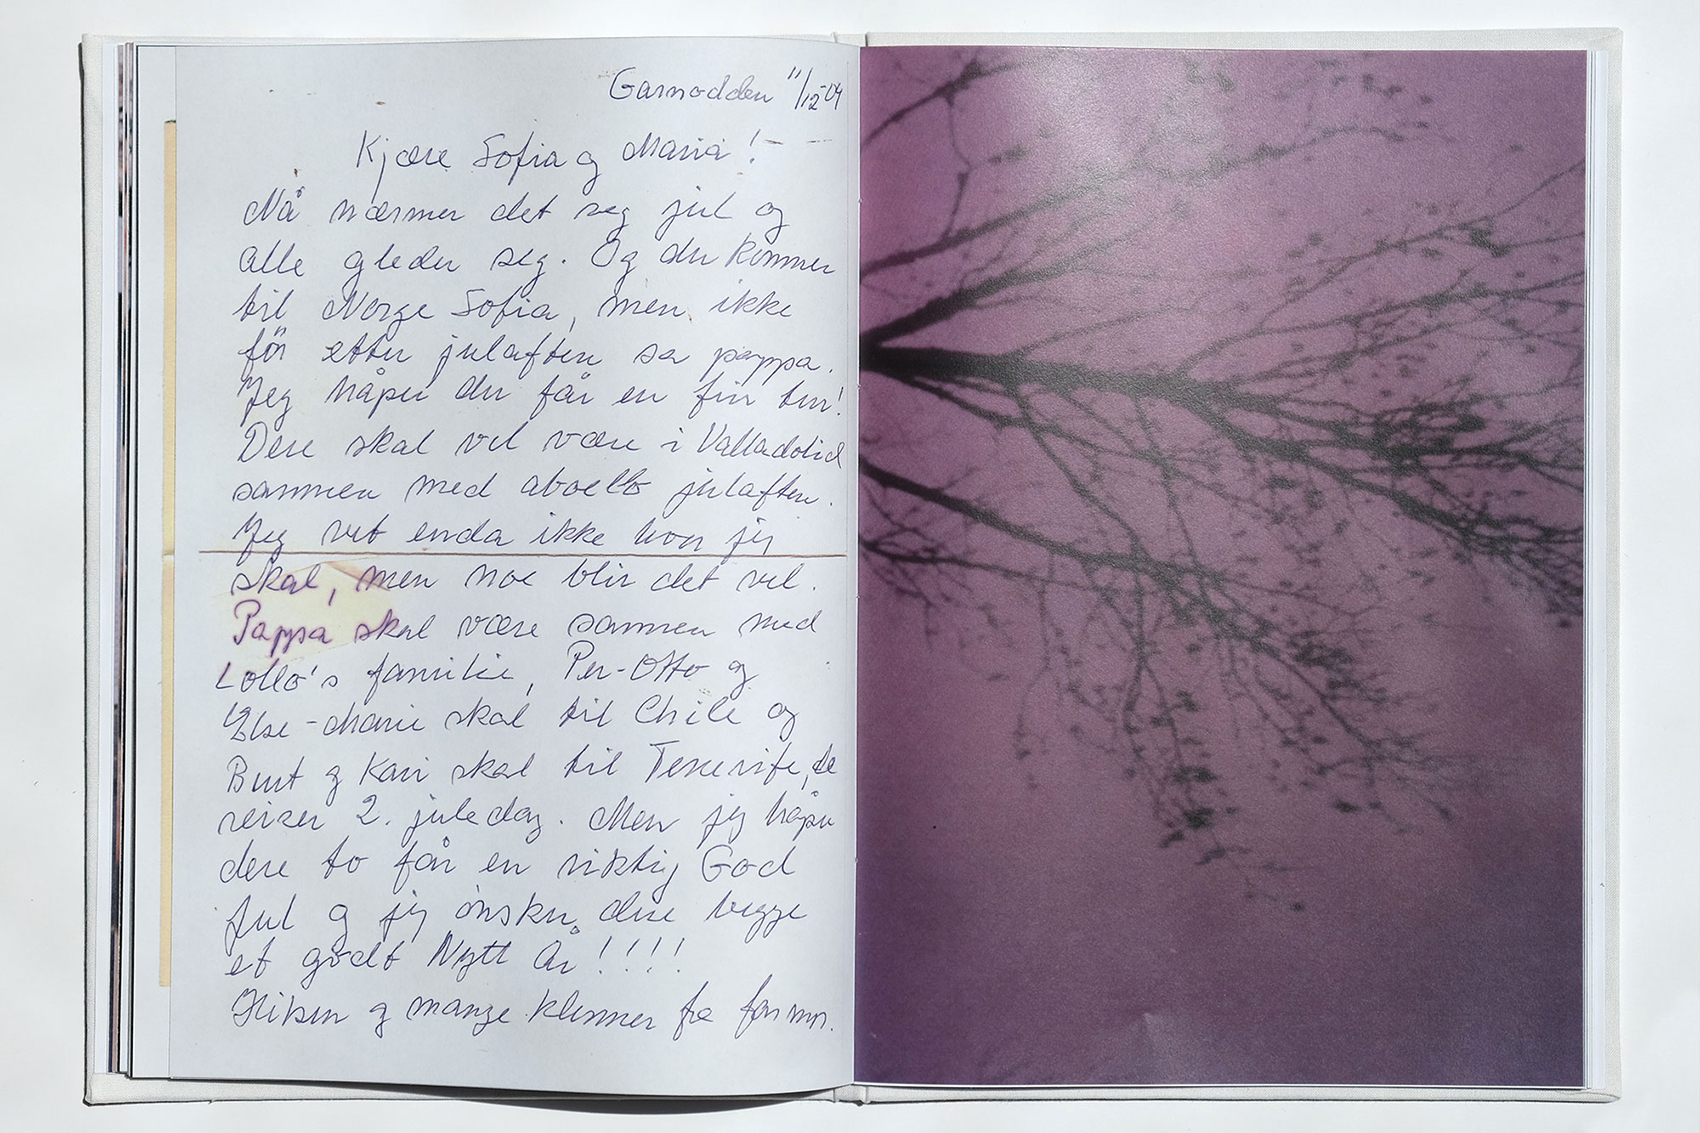 Garnodden 11/12-04
Kjære Sofia og Maria!
Nå nærmer det seg jul og
alle gleder seg. Og du kommer
til Norge Sofia, men ikke
før etter julaften sa pappa.
Jeg håper du får en fin tur!
Dere skal vel være i Valladolid
sammen med abuelo julaften.
Jeg vet enda ikke hvor jeg
skal, men noe blir det vel.
Pappa skal være sammen med
Lollo's familie, Per-Otto og
Else-Marie skal til Chile og
Berit og Kari skal til Tenerife, de
reiser 2. juledag. Men jeg håper
dere to får en riktig God
Jul og jeg ønsker dere begge
et godt Nytt År!!!!
Hilsen og mange klemmer fra farmor.